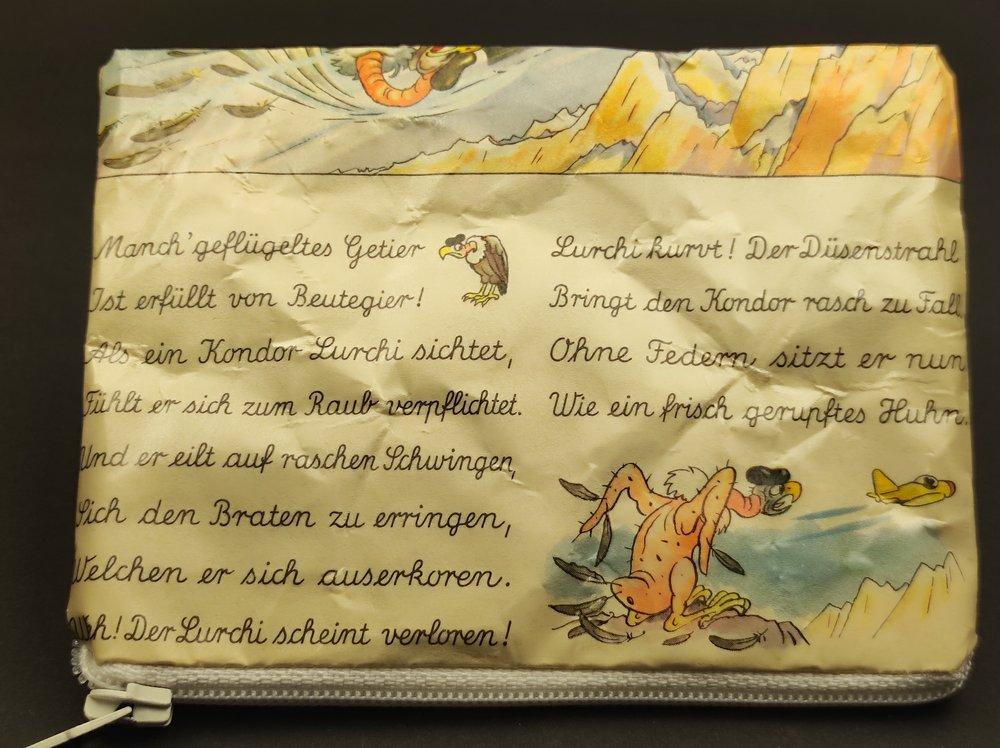 Manch' geflügeltes Getier
Ist erfüllt von Beutegier!
Als ein Kondor Lurchi sichtet,
Fühlt er sich zum Raub verpflichtet.
Und er eilt auf raschen Schwingen,
Sich den Braten zu erringen,
Welchen er sich auserkoren.
Weh! Der Lurchi scheint verloren!
Lurchi kurvt! Der Düsenstrahl
Bringt den Kondor rasch zu Fall.
Ohne Federn sitzt er nun
Wie ein frisch gerupftes Huhn.